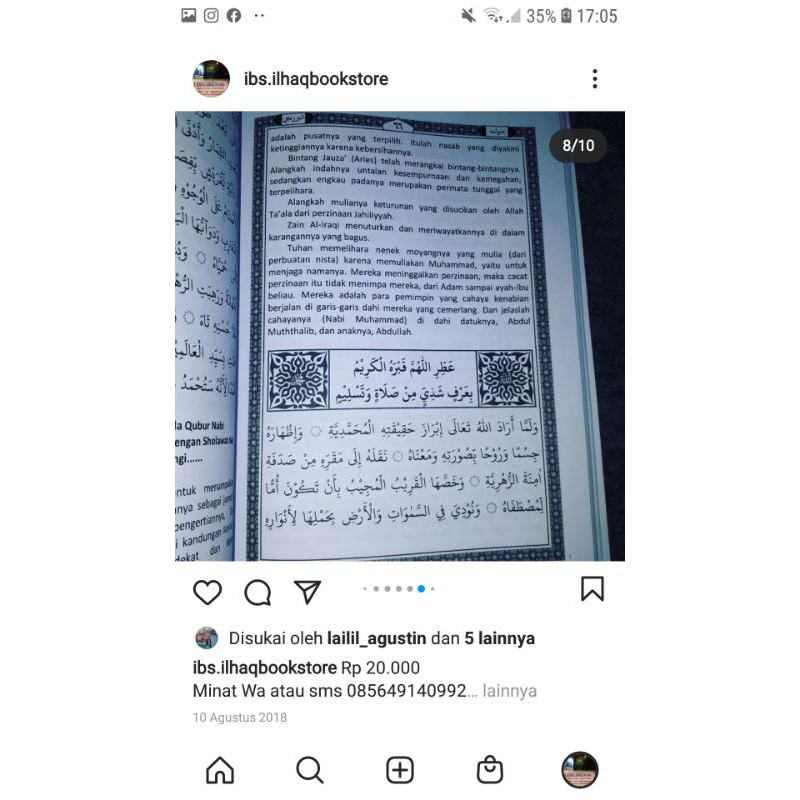 35% 17:05
ibs.ilhaqbookstore
8/10
البرزنجي ٦٦ مولد
adalah pusatnya yang terpilih. Itulah nasab yang diyakini
ketinggiannya karena kebersihannya.
Bintang Jauza' (Aries) telah merangkai bintang-bintangnya.
Alangkah indahnya untaian kesempurnaan dan kemegahan,
sedangkan engkau padanya merupakan permata tunggal yang
terpelihara.
Alangkah mulianya keturunan yang disucikan oleh Allah
Ta'ala dari perzinaan Jahiliyyah.
Zain Al-Iraqi menuturkan dan meriwayatkannya di dalam
karangannya yang bagus.
Tuhan memelihara nenek moyangnya yang mulia (dari
perbuatan nista) karena memuliakan Muhammad, yaitu untuk
menjaga namanya. Mereka meninggalkan perzinaan, maka cacat
perzinaan itu tidak menimpa mereka, dari Adam sampai ayah-ibu
beliau. Mereka adalah para pemimpin yang cahaya kenabian
berjalan di garis-garis dahi mereka yang cemerlang. Dan jelaslah
cahayanya (Nabi Muhammad) di dahi datuknya, Abdul
Muththalib, dan anaknya, Abdullah.
عَطِّرِ اللّٰهُمَّ قَبْرَهُ الْكَرِيْمُ
بِعَرْفٍ شَذِيٍّ مِنْ صَلَاةٍ وَتَسْلِيْمٍ
وَلَمَّا أَرَادَ اللهُ تَعَالَى إِبْرَازَ حَقِيْقَتِهِ الْمُحَمَّدِيَّةِ ○ وَإِظْهَارَهُ
جِسْمًا وَرُوْحًا بِصُوْرَتِهِ وَمَعْنَاهُ ○ نَقَلَهُ إِلَى مَقَرِّهِ مِنْ صَدَفَةِ
اٰمِنَةَ الزُّهْرِيَّةِ ○ وَخَصَّهَا الْقَرِيْبُ الْمُجِيْبُ بِأَنْ تَكُوْنَ أُمًّا
لِمُصْطَفَاهُ ○ وَنُوْدِيَ فِي السَّمٰوَاتِ وَالْأَرْضِ بِحَمْلِهَا لِأَنْوَارِهِ
la Qubur Nabi
engan Sholawat
ngi......
ntuk menampil
nya sebagai
pengertiannya,
i kandungan
dekat dan
Disukai oleh lailil_agustin dan 5 lainnya
ibs.ilhaqbookstore Rp 20.000
Minat Wa atau sms 085649140992... lainnya
10 Agustus 2018